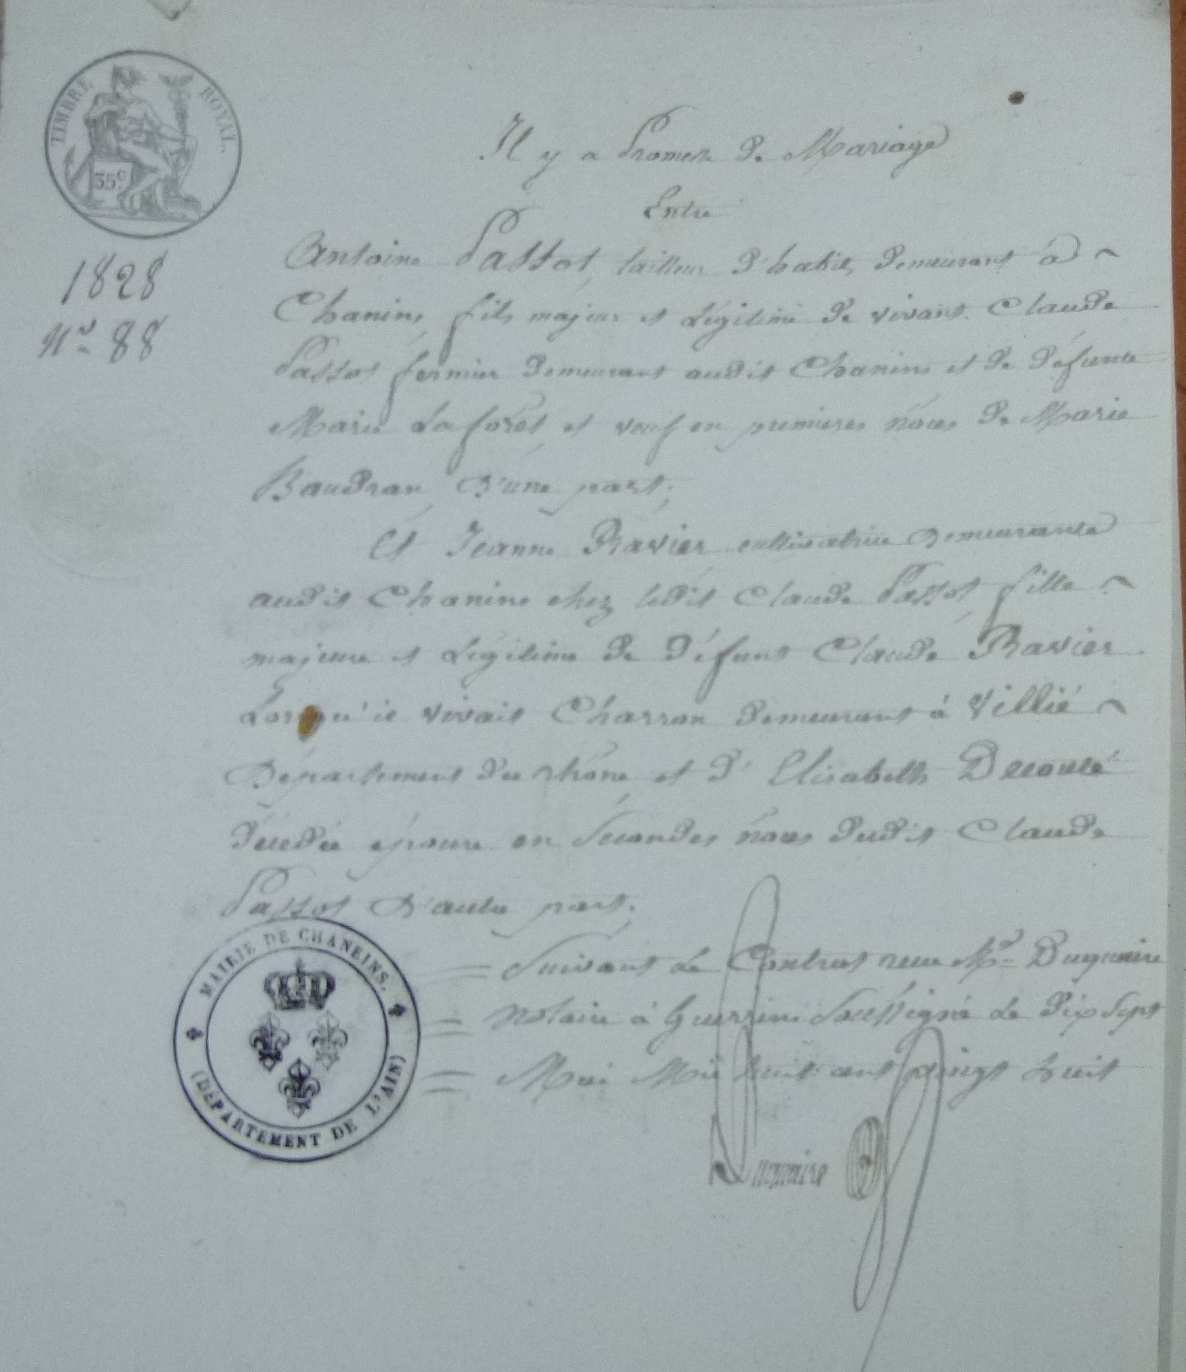 TIMBRE ROYAL.
35c
1828
No 88
Il y a Promesse de Mariage
Entre
Antoine Passot, tailleur d'habits, demeurant à
Chanins, fils majeur et Légitime de vivant Claude
Passot fermier demeurant audit Chanins et de défunte
Marie Laforêt, et veuf en premieres nôces de Marie
Baudran, d'une part;
Et Jeanne Ravier cultivatrice demeurante
audit Chanins chez ledit Claude Passot, fille
majeure et Légitime de défunt Claude Ravier
Lorsqu'il vivait Charron demeurant à Villié
Département du rhône, et d'Elisabeth
décédée épouse en Secondes nôces dudit Claude
Passot d'autre part;
Suivant Le Contrat reçu Me Dugueire
Notaire à Guerrins Soussigné Le dix Sept
Mai Mil huit cent vingt huit
MAIRIE DE CHANEINS.
(DÉPARTEMENT DE L'AIN)